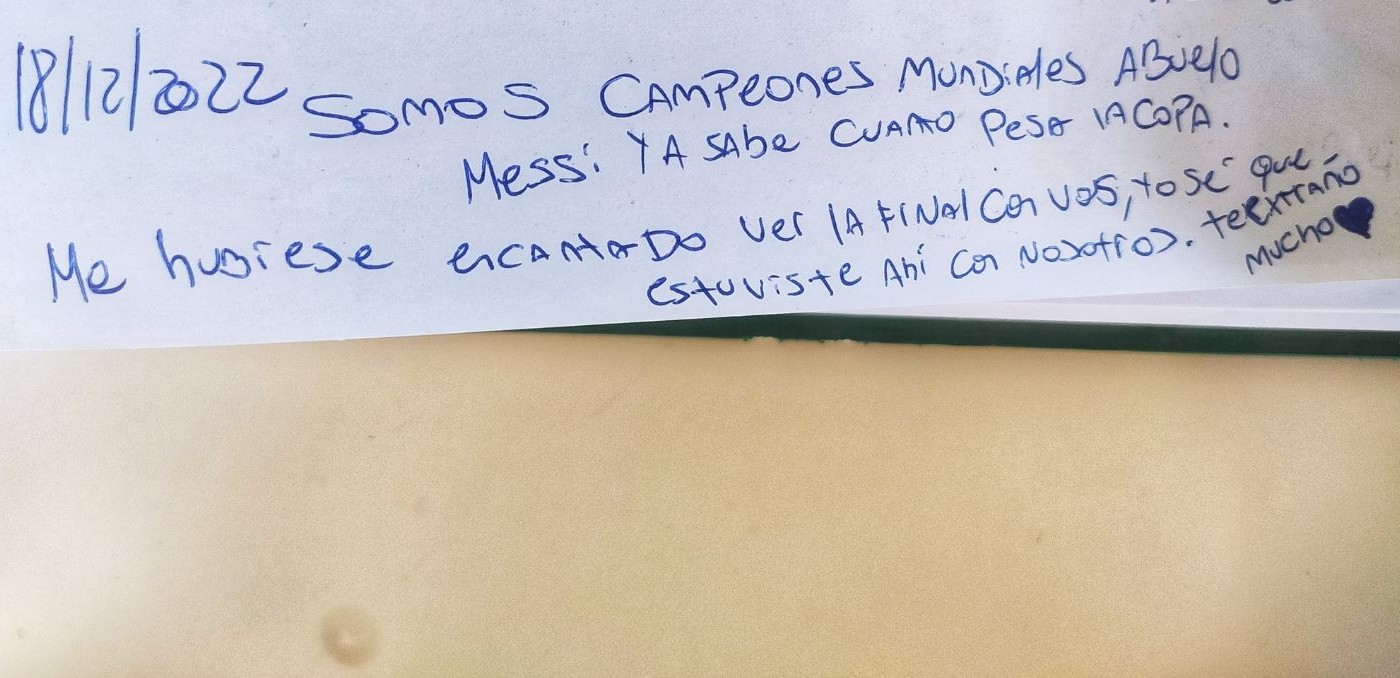 18/12/2022 SOMOS CAMPEONES MUNDIALES ABUELO
Messi YA SABE CUANTO PESA LA COPA.
Me hubiese encantado ver LA FINAL CON VOS, YO SÉ QUE
estuviste Ahí CON NOSOTROS. te EXTRAÑO
MUCHO